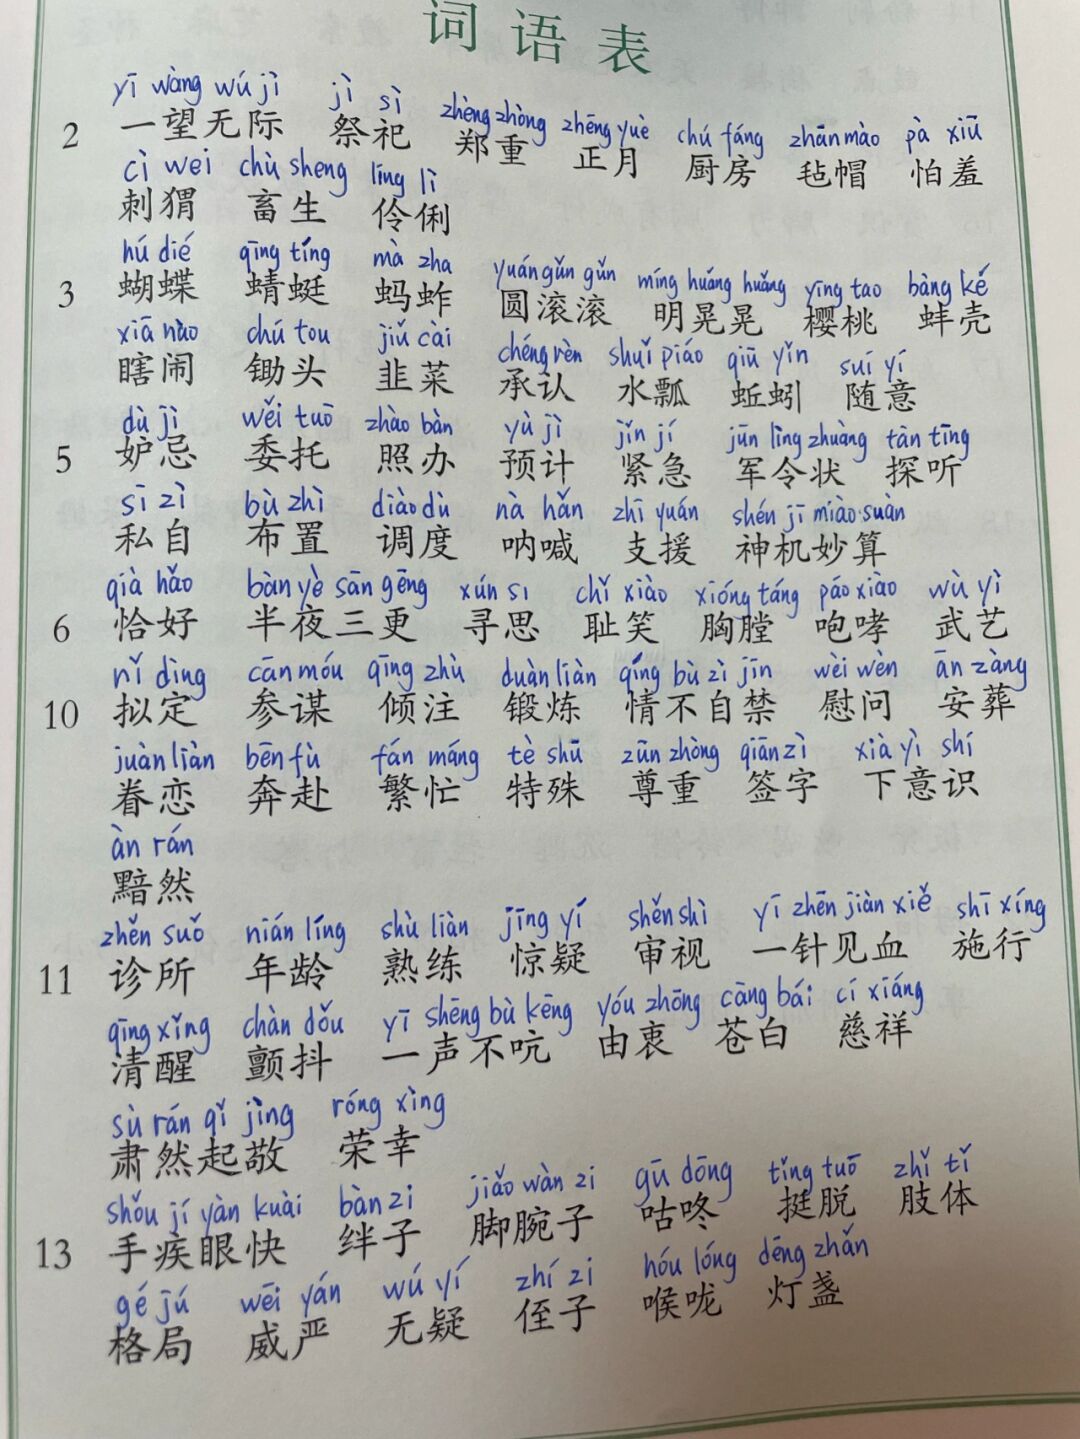 词语表
yī wàng wú jì jì sì zhèng zhòng zhēng yuè chú fáng zhān mào pà xiū
2 一望无际 祭祀 郑重 正月 厨房 毡帽 怕羞
cì wei chù sheng líng lì
刺猬 畜生 伶俐
hú dié qīng tíng mà zha yuán gǔn gǔn míng huǎng huǎng yīng tao bàng ké
3 蝴蝶 蜻蜓 蚂蚱 圆滚滚 明晃晃 樱桃 蚌壳
xiā nào chú tou jiǔ cài chéng rèn shuǐ piáo qiū yǐn suí yí
瞎闹 锄头 韭菜 承认 水瓢 蚯蚓 随意
dù jì wěi tuō zhào bàn yù jì jǐn jí jūn lìng zhuàng tàn tīng
5 妒忌 委托 照办 预计 紧急 军令状 探听
sī zì bù zhì diào dù nà hǎn zhī yuán shén jī miào suàn
私自 布置 调度 呐喊 支援 神机妙算
qià hǎo bàn yè sān gēng xún sī chǐ xiào xióng táng páo xiào wù yì
6 恰好 半夜三更 寻思 耻笑 胸膛 咆哮 武艺
nǐ dìng cān móu qīng zhù duàn liàn qíng bù zì jīn wèi wèn ān zàng
10 拟定 参谋 倾注 锻炼 情不自禁 慰问 安葬
juàn liàn bēn fù fán máng tè shū zūn zhòng qiān zì xià yì shí
眷恋 奔赴 繁忙 特殊 尊重 签字 下意识
àn rán
黯然
zhěn suǒ nián líng shù liàn jīng yí shěn shì yī zhēn jiàn xiě shī xíng
11 诊所 年龄 熟练 惊疑 审视 一针见血 施行
qīng xǐng chàn dǒu yī shēng bù kēng yóu zhōng cāng bái cí xiáng
清醒 颤抖 一声不吭 由衷 苍白 慈祥
sù rán qǐ jìng róng xìng
肃然起敬 荣幸
shǒu jí yàn kuài bàn zi jiǎo wàn zi gū dōng tǐng tuō zhǐ tǐ
13 手疾眼快 绊子 脚腕子 咕咚 挺脱 肢体
gé jú wēi yán wú yí zhí zi hóu lóng dēng zhǎn
格局 威严 无疑 侄子 喉咙 灯盏